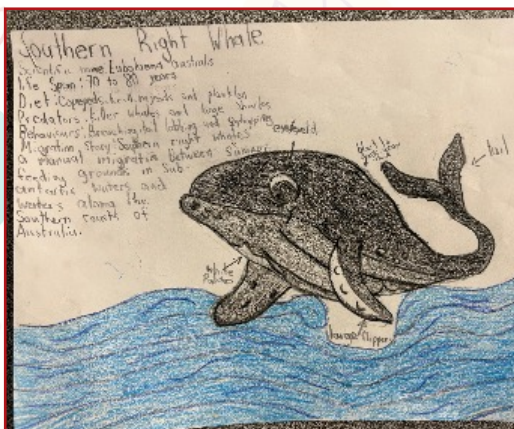 Southern Right Whale
Scientific name: Eubalaena australis
Life Span: 70 to 80 years
Diet: Copepods, krill, mysids and plankton
Predators: Killer whales and large sharks
Behaviours: Breaching, tail lobbing and
Migration Story: Southern right whales
a manual migration between summer
feeding grounds in Sub-
antarctic waters and
winters along the
Southern coasts of
Australia.
tail
Flipper